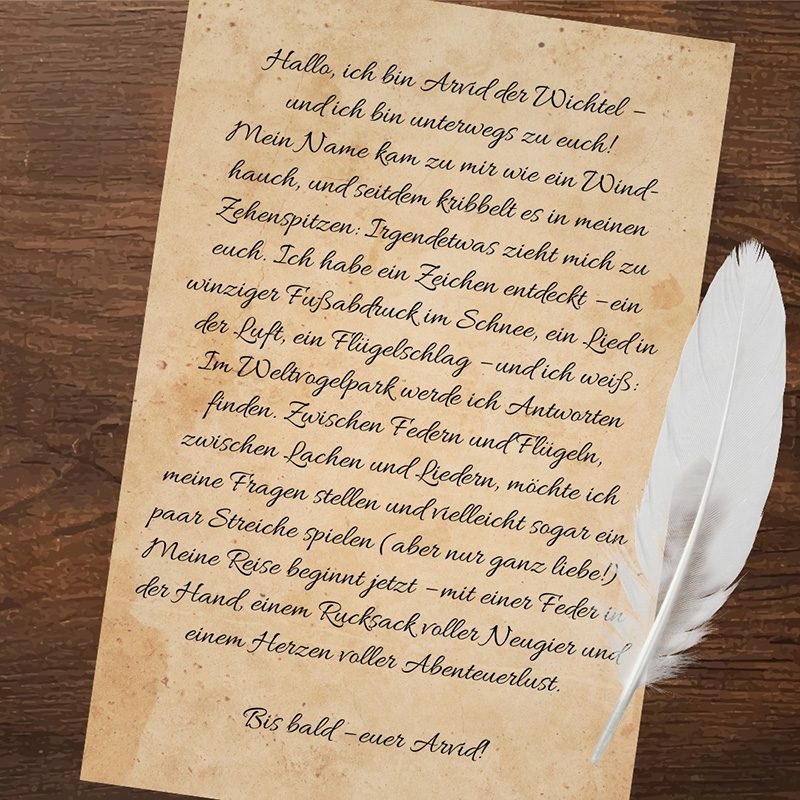 Hallo, ich bin Arvid der Wichtel –
und ich bin unterwegs zu euch!
Mein Name kam zu mir wie ein Wind-
hauch, und seitdem kribbelt es in meinen
Zehenspitzen: Irgendetwas zieht mich zu
euch. Ich habe ein Zeichen entdeckt – ein
winziger Fußabdruck im Schnee, ein Lied in
der Luft, ein Flügelschlag – und ich weiß:
Im Weltvogelpark werde ich Antworten
finden. Zwischen Federn und Flügeln,
zwischen Lachen und Liedern, möchte ich
meine Fragen stellen und vielleicht sogar ein
paar Streiche spielen (aber nur ganz liebe!)
Meine Reise beginnt jetzt – mit einer Feder in
der Hand, einem Rucksack voller Neugier und
einem Herzen voller Abenteuerlust.
Bis bald – euer Arvid!